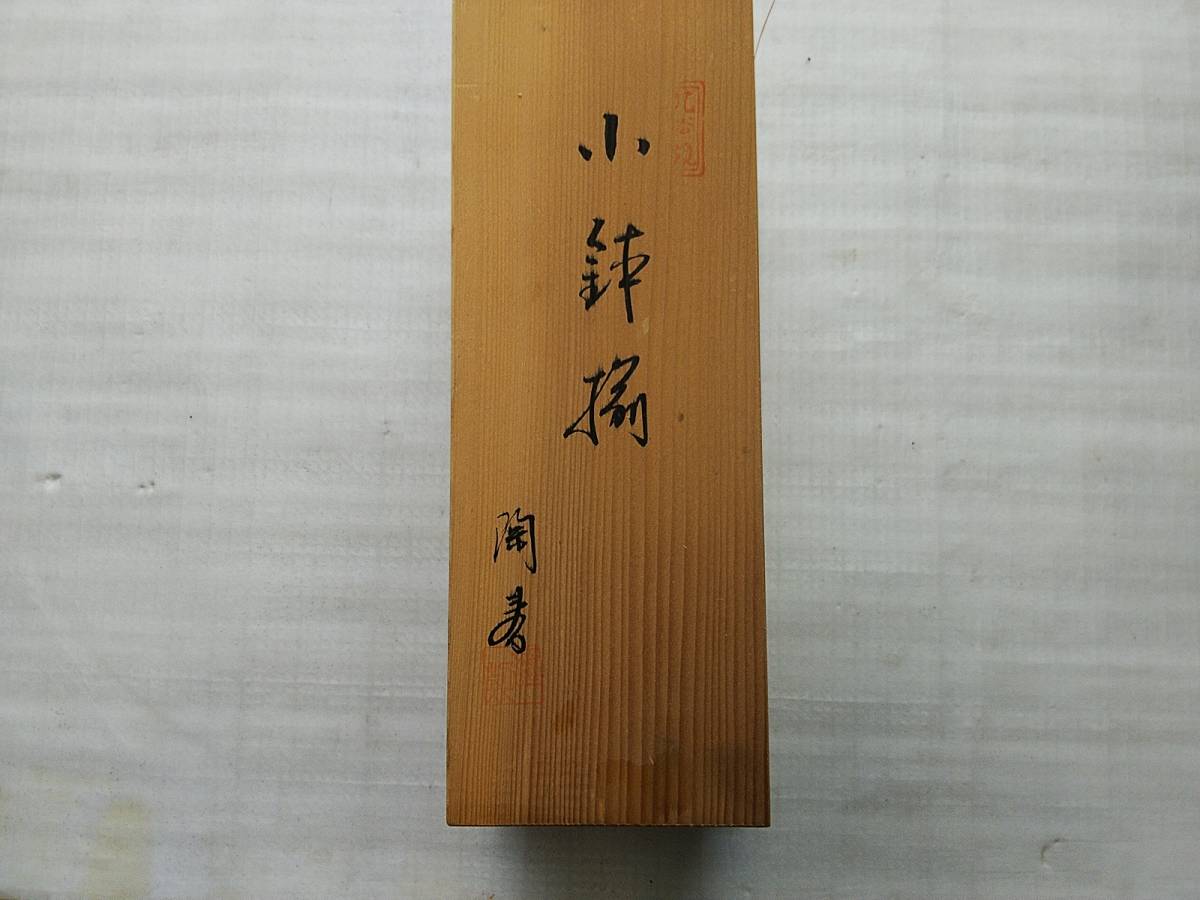 小鉢揃
陶春